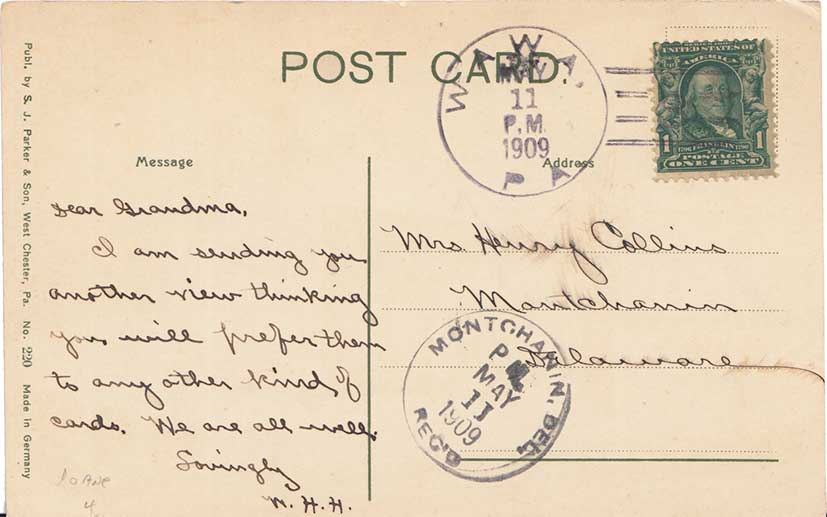 POST CARD.
WAWA,
MAY
11
P.M.
1909
PA.
UNITED STATES OF
AMERICA
1 FRANKLIN 1
POSTAGE
ONE CENT
Publ. by S. J. Parker & Son, West Chester, Pa. No. 220 Made in Germany
Message
Address
Dear Grandma,
I am sending you
another view thinking
you will prefer them
to any other kind of
cards. We are all well.
Lovingly
W. H. H.
Mrs Henry Collins
Montchanin
Delaware
MONTCHANIN, DEL.
P.M.
MAY
11
1909
REC'D